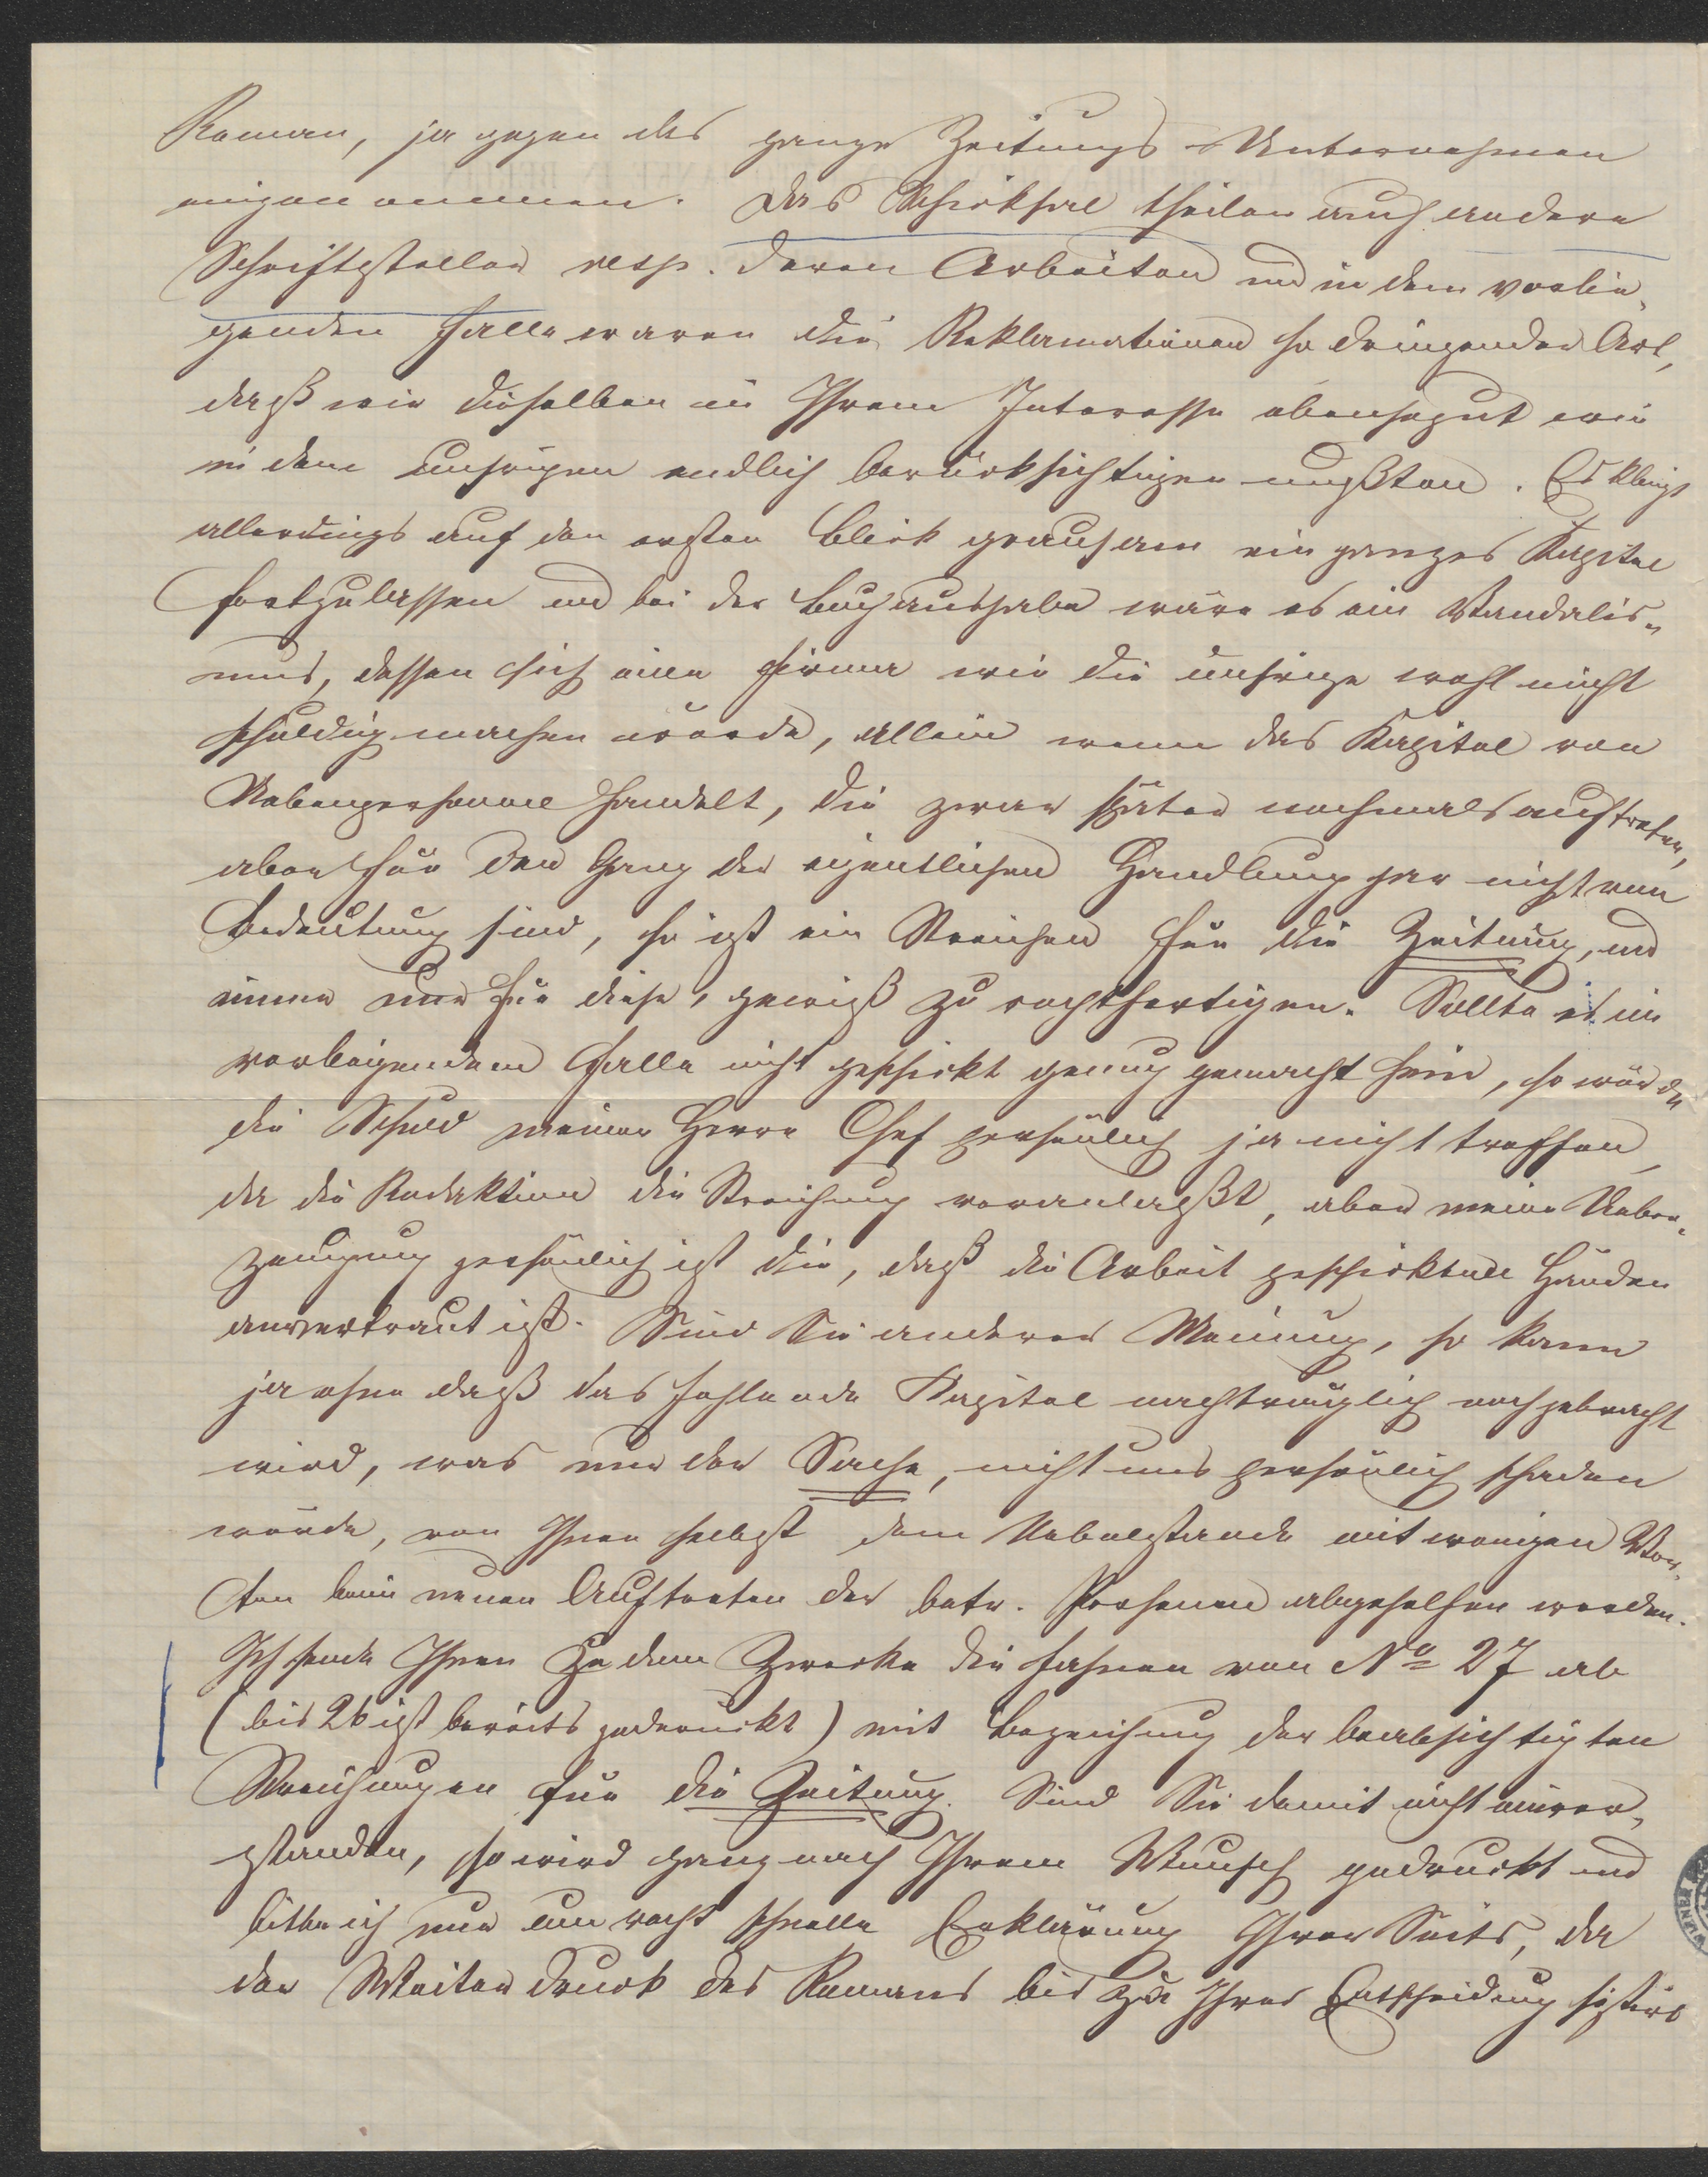 Roman, ja gegen das ganze Zeitungs-Unternehmen
eingenommen. Das Schicksal theilen auch andere
Schriftsteller resp. deren Arbeiten und in dem vorlie-
genden Falle waren die Reklamationen so dringender Art,
daß wir dieselben in Ihrem Interesse ebensogut wie
in dem unsrigen endlich berücksichtigen mußten. Es klingt
allerdings auf den ersten Blick grausam ein ganzes Kapitel
fortzulassen und bei der Buchausgabe wäre es ein Vandalis-
mus, dessen sich eine Firma wie die unsrige wohl nicht
schuldig machen würde, allein wenn das Kapitel von
Nebenpersonen handelt, die zwar später nochmals auftreten,
aber für den Gang der eigentlichen Handlung gar nicht von
Bedeutung sind, so ist ein Streichen für die Zeitung, und
immer nur für diese, gewiß zu rechtfertigen. Sollte es im
vorliegenden Falle nicht geschickt genug gemacht sein, so würde
die Schuld meinen Herrn Chef persönlich ja nicht treffen,
da die Redaktion die Streichung veranlaßt, aber meine Ueber-
zeugung persönlich ist die, daß die Arbeit geschickten Händen
anvertraut ist. Sind Sie anderer Meinung, so kann
ja ohne daß das fehlende Kapitel nachträglich noch gebracht
wird, was nur der Sache, nicht uns persönlich schaden
würde, von Ihnen selbst dem Uebelstande mit wenigen Wor-
ten beim neuen Auftreten der betr. Personen abgeholfen werden.
Ich sende Ihnen zu dem Zwecke die Fahnen von No 27 ab
(bis 26 ist bereits gedruckt) mit Bezeichnung der beabsichtigten
Streichungen für die Zeitung. Sind Sie damit nicht einver-
standen, so wird ganz nach Ihrem Wunsch gedruckt und
bitte ich nur um recht schnelle Erklärung Ihrer Seits, da
der Weiterdruck des Romans bis zu Ihrer Entscheidung sistirt